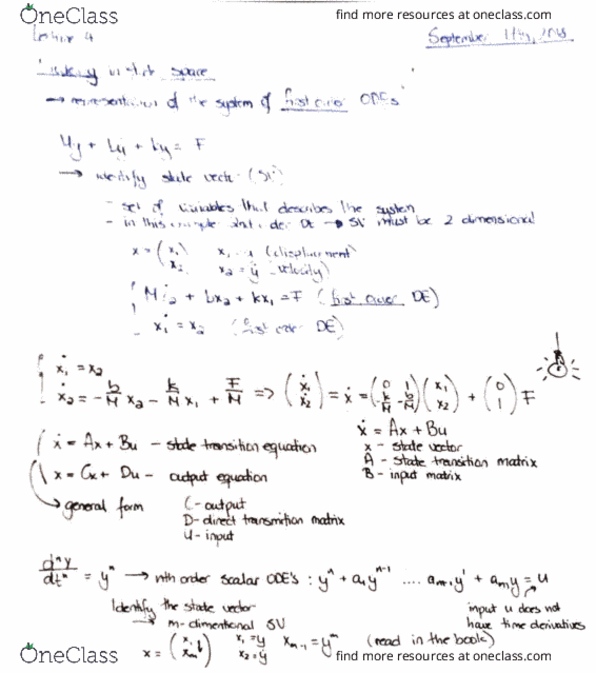 OneClass
find more resources at oneclass.com
Lecture 4
September 11th, 2018
in state space
→ representation of the system of first order ODEs
My + by + ky = F
→ identify state vector (SV)
- set of variables that describes the system
- in this example 2nd order DE → SV must be 2 dimensional
x = (x₁ x₂) x₁ = y (displacement)
x₂ = ẏ (velocity)
Mẋ₂ + bx₂ + kx₁ = F (first order DE)
ẋ₁ = x₂ (first order DE)
ẋ₁ = x₂
ẋ₂ = -b/M x₂ - k/M x₁ + F/M => (ẋ₁ ẋ₂) = ẋ = (0 1 -k/M -b/M)(x₁ x₂) + (0 1) F
ẋ = Ax + Bu
ẋ = Ax + Bu - state transition equation
x - state vector
A - state transition matrix
x = Cx + Du - output equation
B - input matrix
general form
C - output
D - direct transmition matrix
U - input
dⁿy/dtⁿ = yⁿ → nth order scalar ODE's : yⁿ + a₁yⁿ⁻¹ .... aₘ₋₁y' + aₘy = u
Identify the state vector
→ m-dimentional SV
input u does not
have time derivatives
x = (x₁ ↓ xₘ) x₁ = y xₘ₋₁ = yᵐ (read in the book)
x₂ = ẏ
OneClass
find more resources at oneclass.com